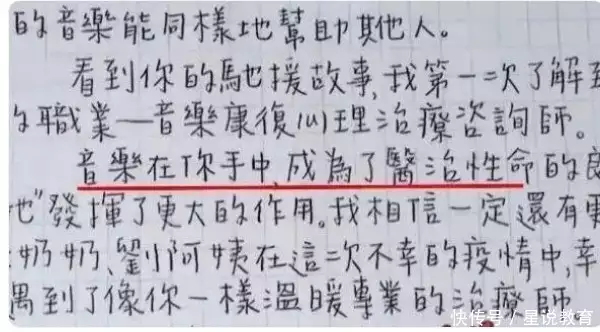 的音樂能同樣地幫助其他人。
看到你的馳援故事,我第一次了解到
職業—音樂康復心理治療咨詢師。
音樂在你手中,成為了醫治性命的良
也"發揮了更大的作用。我相信一定還有更
奶奶、劉阿姨在這次不幸的疫情中,幸
遇到了像你一樣溫暖專業的治療師
快传号/星说教育